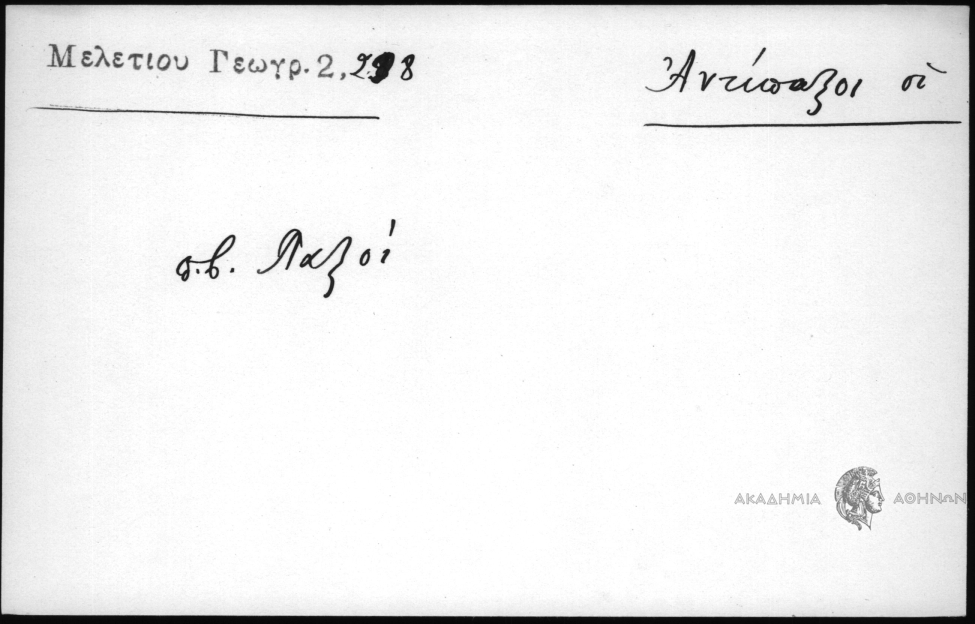 Μελετιου Γεωγρ. 2, 298
Ἀντίπαξοι οἱ
σ.β. Παξοί
ΑΚΑΔΗΜΙΑ ΑΘΗΝΩΝ